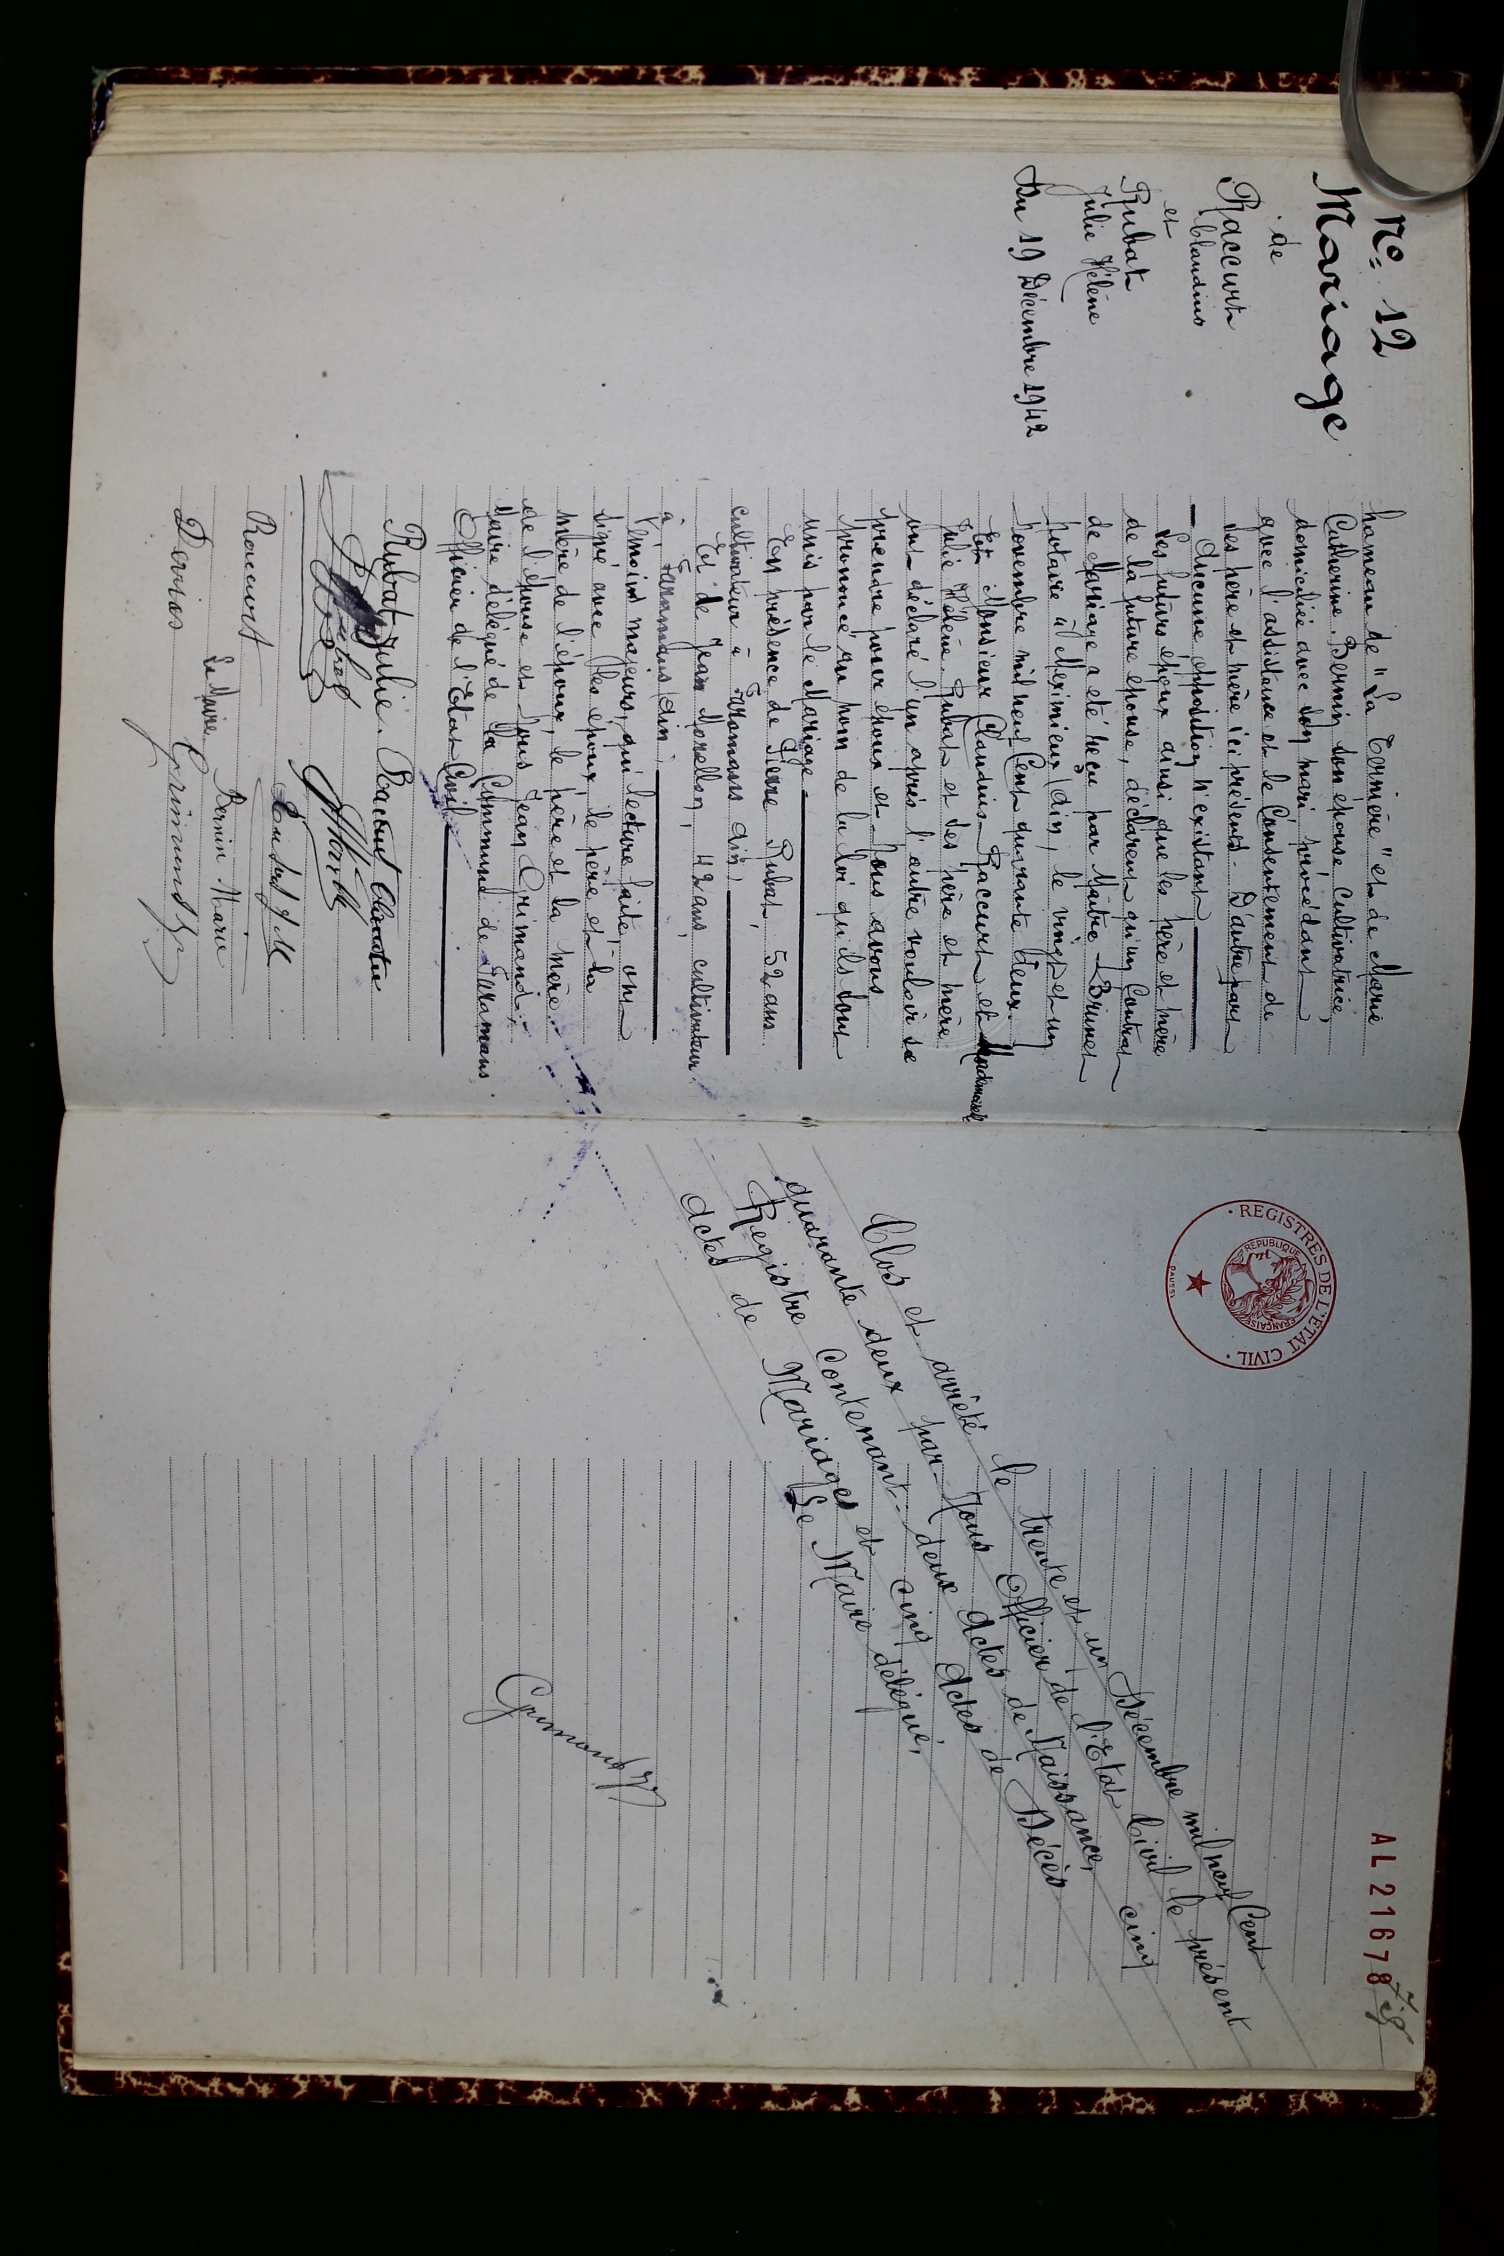 No 12
Mariage
de
Raccurt
Claudius
et
Rubat
Julie Hélène
Du 19 Décembre 1942
hameau de "La Ternière" et de Marie
Catherine Bernin son épouse cultivatrice,
domiciliée avec son mari, procédant
avec l'assistance et le Consentement de
ses père et mère ici présents. D'autre part
Aucune opposition n'existant
Les futurs époux ainsi que les père et mère
de la future épouse, déclarent qu'un Contrat
de Mariage a été reçu par Maître Brunet
notaire à Meximieux (Ain) le vingt et un
Novembre mil neuf Cent quarante deux.
Monsieur Claudius Raccurt et Mademoiselle
Julie Hélène Rubat et ses père et mère
ont déclaré l'un après l'autre vouloir se
prendre pour époux et Nous avons
prononcé au nom de la loi qu'ils sont
unis par le Mariage.
En présence de Pierre Rubat, 52 ans
cultivateur à Faramans (Ain)
Et de Jean Morellon, 42 ans, cultivateur
à Faramans (Ain)
Témoins majeurs, qui lecture faite, ont
signé avec les époux, le père et la
mère de l'époux, le père et la mère
de l'épouse et Nous Jean Grimand,
Maire délégué de la Commune de Faramans
Officier de l'Etat Civil
Rubat Julie. Raccurt Claudius
Raccurt
Bernin Marie
Le Maire
Grimand
AL 21678
REGISTRES DE L'ÉTAT CIVIL
RÉPUBLIQUE FRANÇAISE
Clos et arrêté le trente et un Décembre mil neuf Cent
quarante deux par Nous Officier de l'Etat Civil le présent
Registre Contenant deux Actes de Naissance, cinq
Actes de Mariages et cinq Actes de Décès
Le Maire délégué,
Grimand